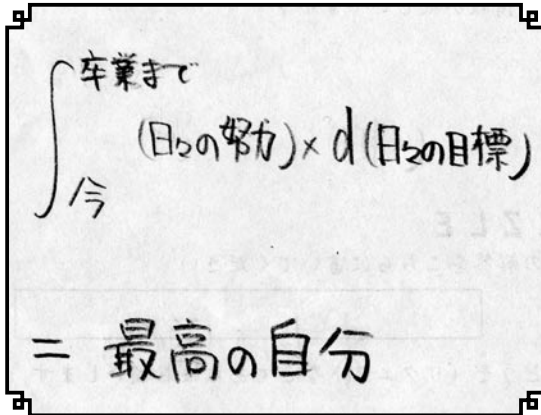 ∫卒業まで
(日々の努力)×d(日々の目標)
今
= 最高の自分